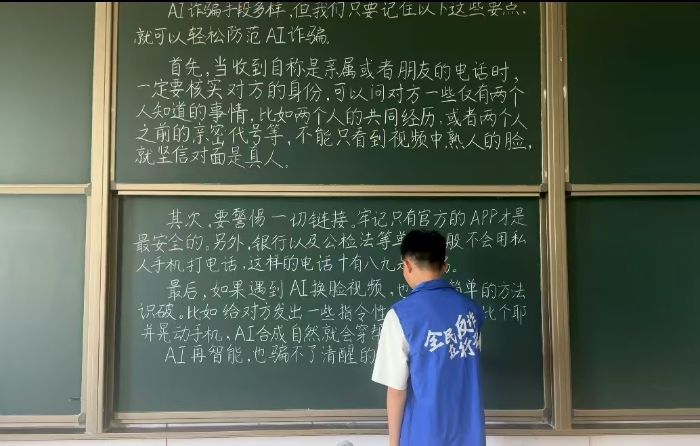 AI诈骗手段多样,但我们只要记住以下这些要点,
就可以轻松防范AI诈骗。
首先,当收到自称是亲属或者朋友的电话时,
一定要核实对方的身份,可以问对方一些仅有两个
人知道的事情,比如两个人的共同经历,或者两个人
之前的亲密代号等,不能只看到视频中熟人的脸,
就坚信对面是真人。
其次,要警惕一切链接。牢记只有官方的APP才是
最安全的。另外,银行以及公检法等 般不会用私
人手机打电话,这样的电话十有八九
最后,如果遇到AI换脸视频,也 简单的方法
识破。比如给对方发出一些指令性 比个耶
并晃动手机,AI合成自然就会穿帮
AI再智能,也骗不了清醒的
全民反诈